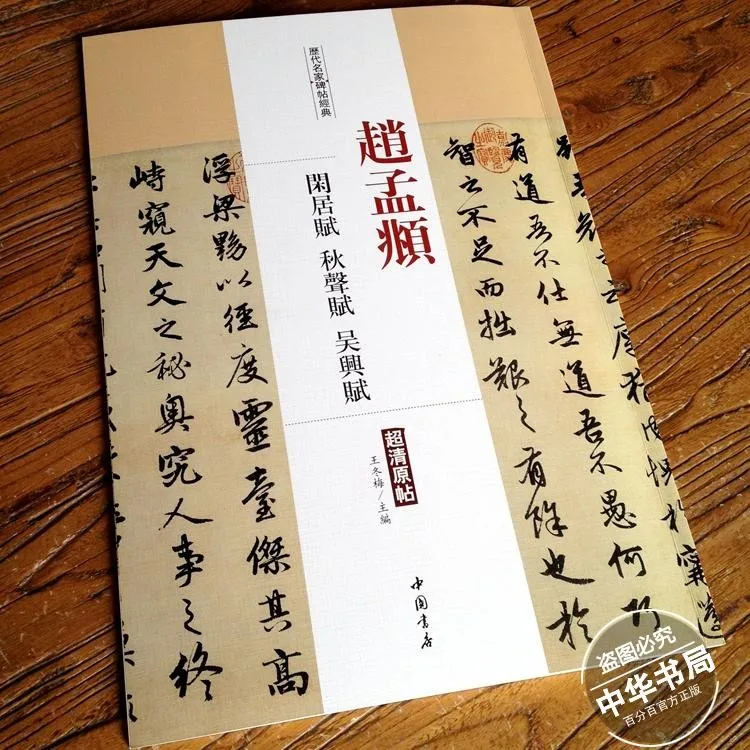 歷代名家碑帖經典
趙孟頫
閑居賦 秋聲賦 吴興賦
超清原帖
王冬梅/主編
中国書店
有道吾不仕無道吾不愚何巧
智之不足而拙艱之有餘也於
浮梁黝以徑度靈臺傑其高
峙窺天文之秘奧究人事之終
盗图必究
中华书局
百分百官方正版